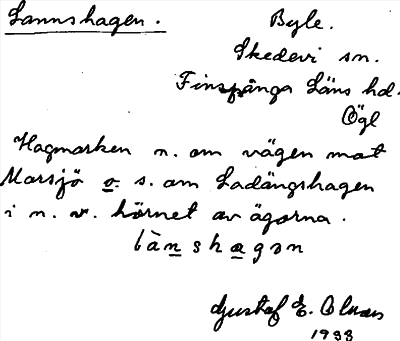 Lannshagen.
Byle.
Skedevi sn.
Finspånga Läns hd.
Ögl
Hagmarken n. om vägen mot
Marsjö o. s. om Ladängshagen
i n. v. hörnet av ägorna.
làn̲sha̲gən
Gustaf E. Olsson
1933